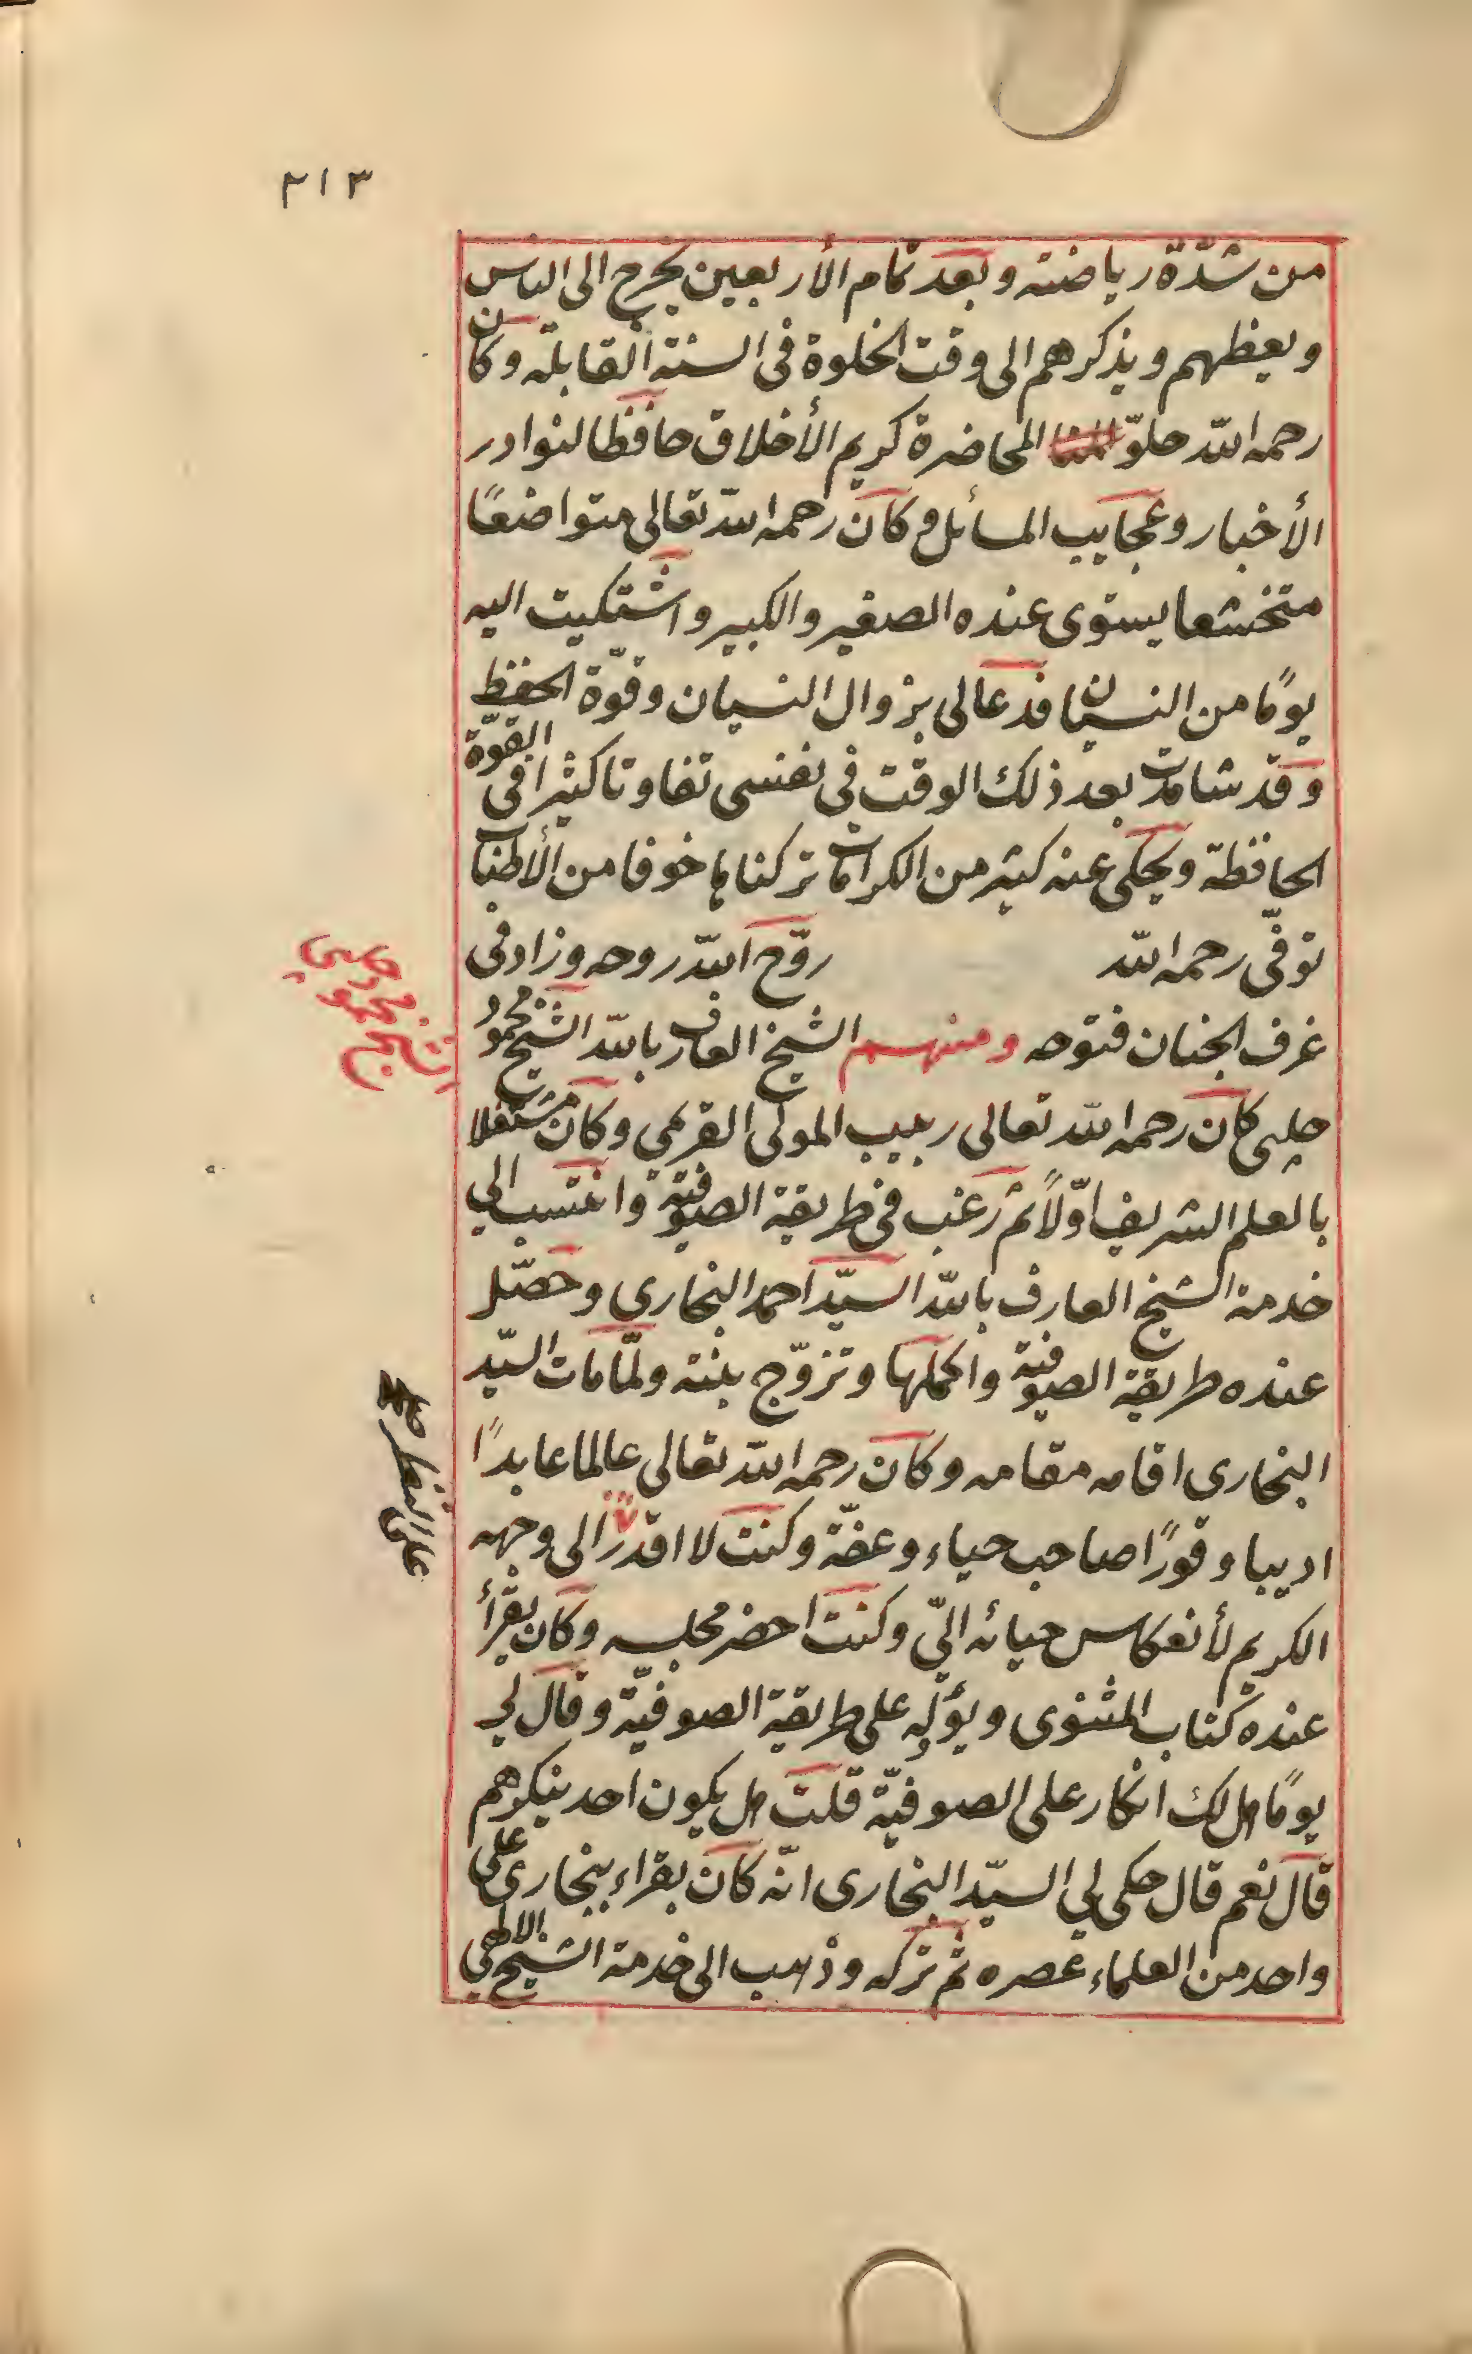 ٢١٣
من شدّة رياضته وبعد تمام الأربعين يخرج الى الناس
ويعظهم ويذكرهم الى وقت الخلوة في السنة القابلة وكان
رحمه الله حلوّ المحاضرة كريم الأخلاق حافظا لنوادر
الأخبار وعجايب المسائل وكان رحمه الله تعالى متواضعًا
متخشعا يستوى عنده الصغير والكبير واشتكيت اليه
يومًا من النسيان فدعالى بزوال النسيان وقوّة الحفظ
وقد شاهدت بعد ذلك الوقت في نفسى تفاوتا كثيرا في القوّة
الحافظة ويحكى عنه كثير من الكرامات تركناها خوفا من الأطناب
توفّى رحمه الله روّح الله روحه وزاد في
غرف الجنان فتوحه ومنهم الشيخ العارف بالله الشيخ محمود
چلبى كان رحمه الله تعالى ربيب المولى القرمي وكان مشتغلا
بالعلم الشريف اوّلاً ثم رغب في طريقة الصوفية وانتسب الى
خدمة الشيخ العارف بالله السيّد احمد البخارى وحصّل
عنده طريقة الصوفية واكملها وتزوّج بنته ولمّا مات السيّد
البخارى اقامه مقامه وكان رحمه الله تعالى عالما عابدًا
اديبا وقورًا صاحب حياء وعفّة وكنت لا اقدر الى وجهه
الكريم لأنعكاس حيائه اليّ وكنت احضر مجلسه وكان يقرأ
عنده كتاب المثنوى ويؤله على طريقة الصوفيّة وقال لي
يومًا هل لك انكار على الصوفيّة قلت هل يكون احد ينكرهم
قال نعم قال حكى لي السيّد البخارى انّه كان يقراء ببخارى على
واحد من العلماء عصره ثم تركه وذهب الى خدمة الشيخ الالهي
الشيخ محمود چلبى
على النظر صح